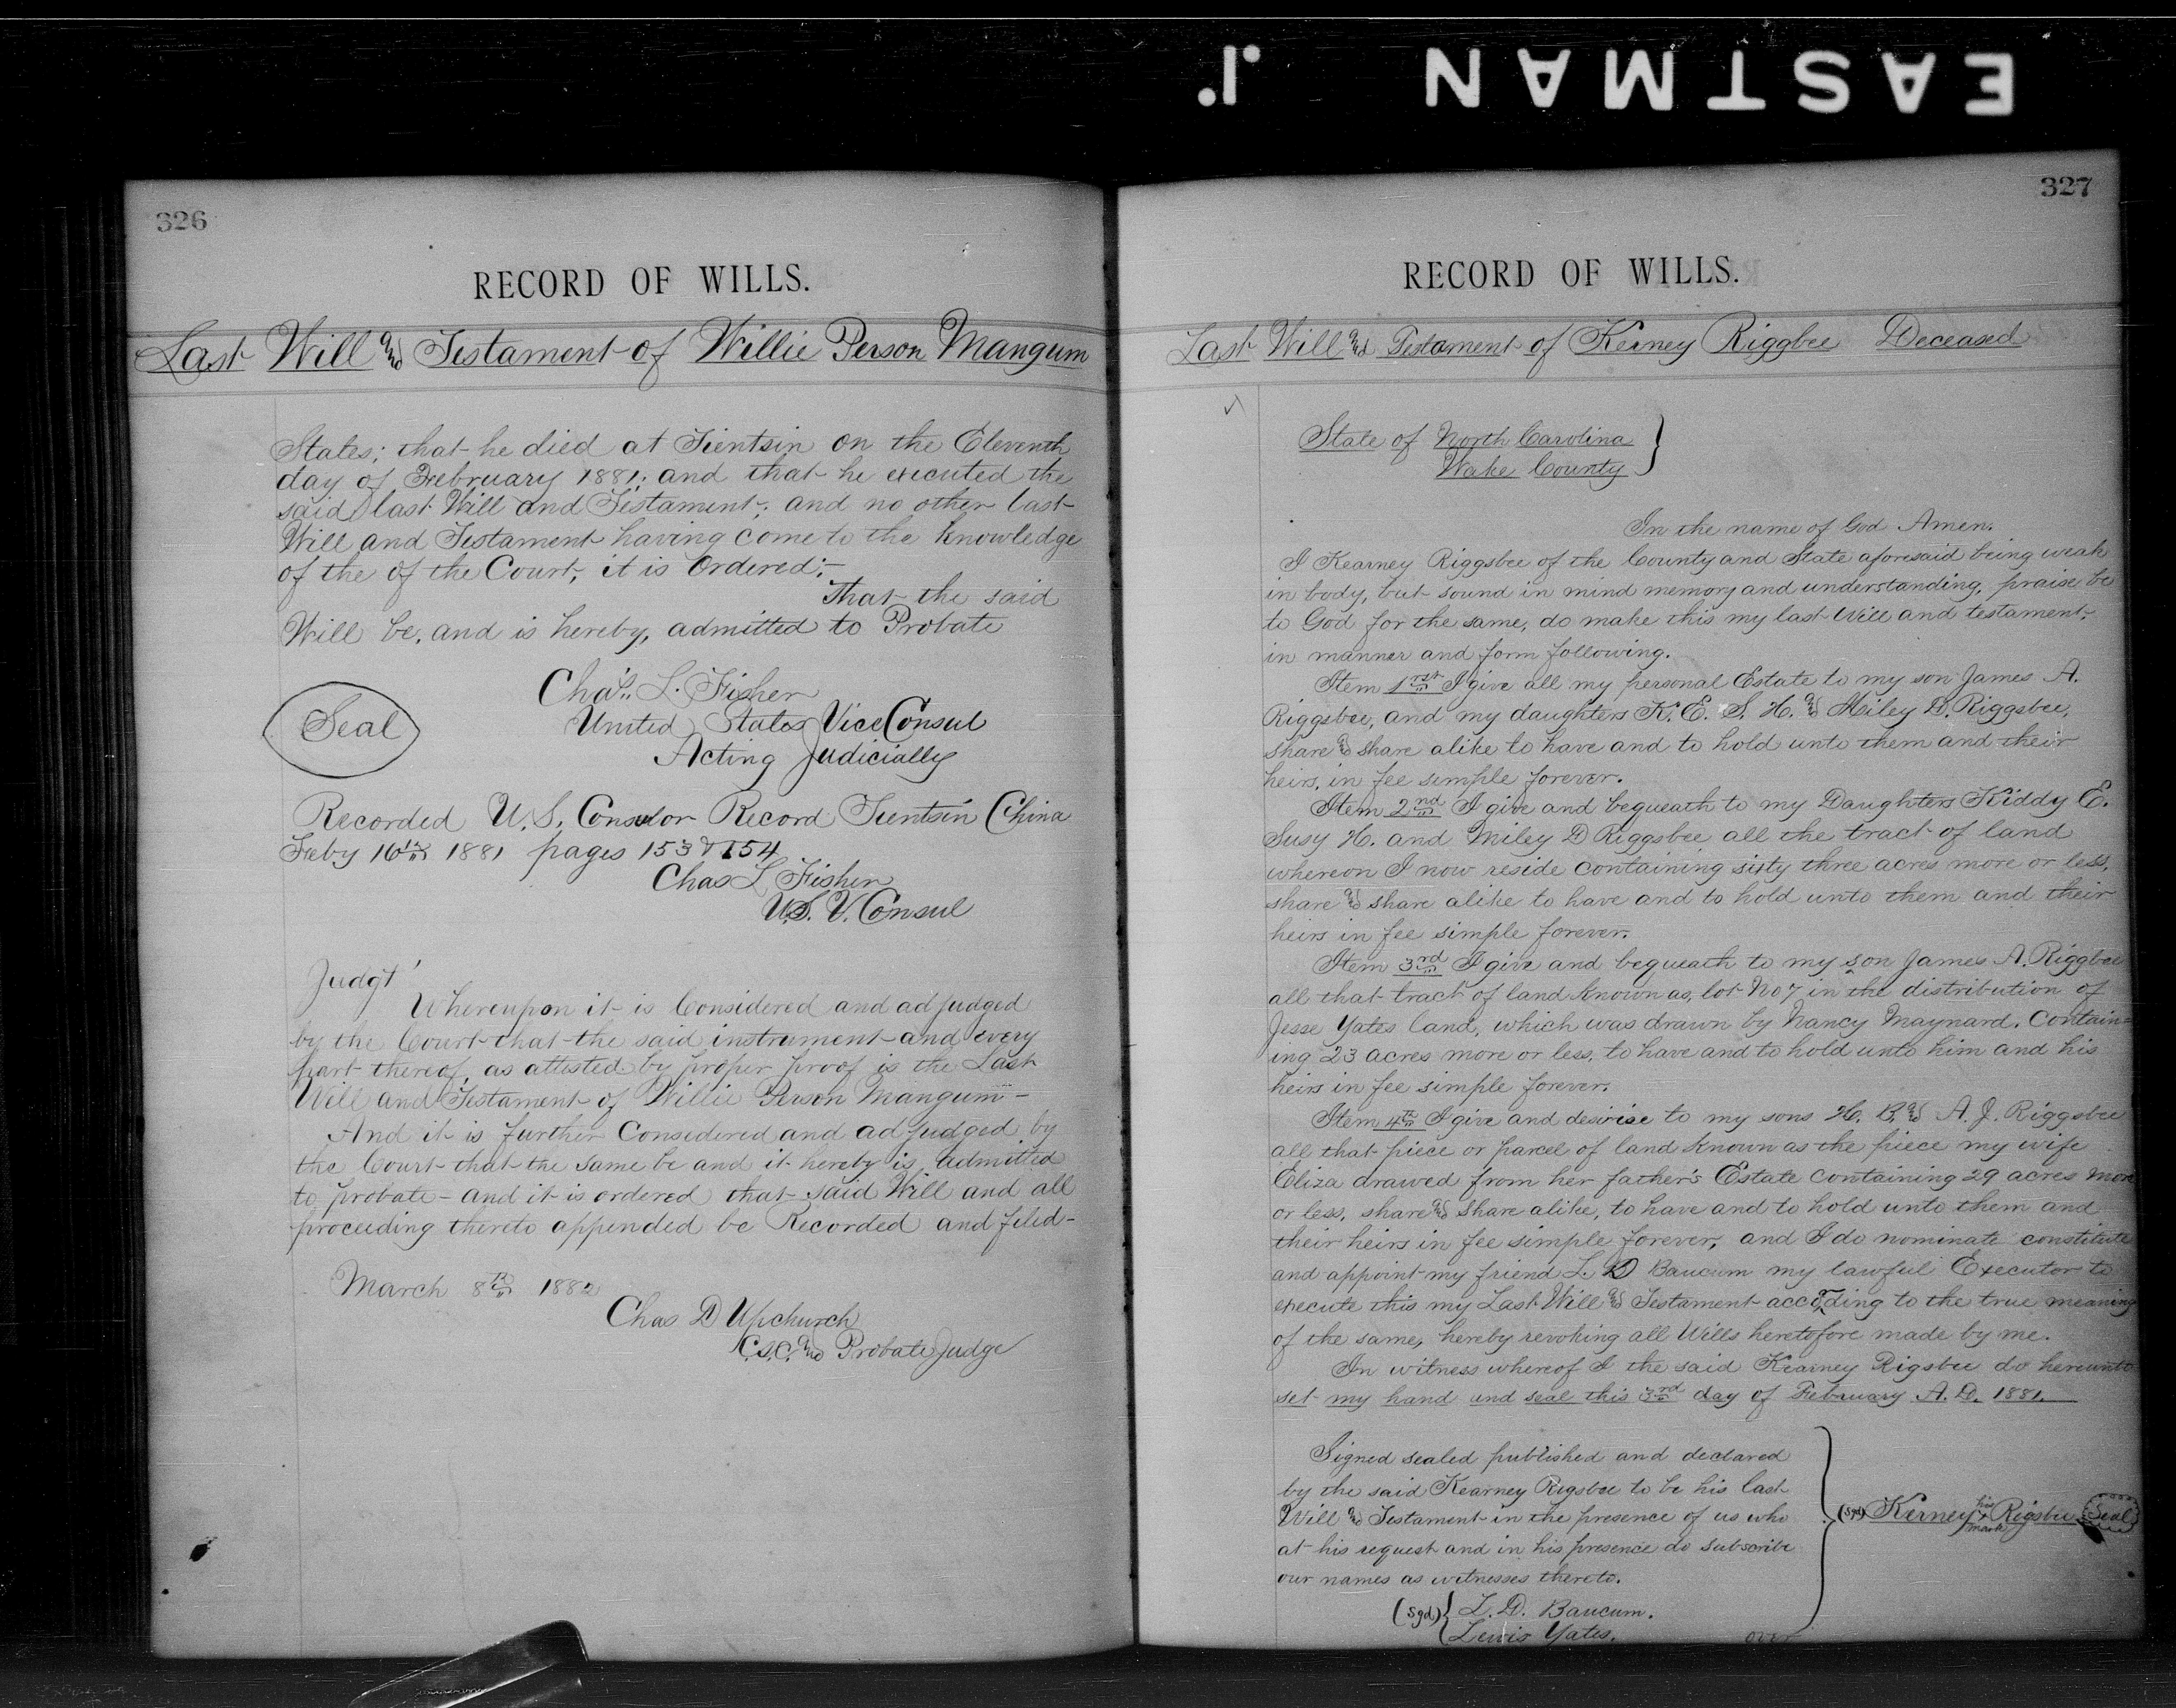 EASTMAN J.
326
RECORD OF WILLS.
Last Will and Testament of Willie Person Mangum
States; that he died at Tientsin on the Eleventh
day of February 1881; and that he executed the
said last Will and Testament; and no other last
Will and Testament having come to the knowledge
of the of the Court, it is Ordered;-
That the said
Will be, and is hereby, admitted to Probate
Chas. L. Fisher
United States Vice Consul
Acting Judicially
Seal
Recorded U. S. Consular Record Tientsin China
Feby 16th 1881 pages 153 & 154
Chas L Fisher
U.S. V. Consul
Judgt
Whereupon it is Considered and adjudged
by the Court that the said instrument and every
part thereof, as attested by proper proof is the Last
Will and Testament of Willie Person Mangum -
And it is further Considered and adjudged by
the Court that the same be and it hereby is admitted
to probate - and it is ordered that said Will and all
proceeding thereto appended be Recorded and filed -
March 8th 1882
Chas D Upchurch
C.S.C. and Probate Judge
327
RECORD OF WILLS.
Last Will and Testament of Kerney Riggbee Deceased
State of North Carolina
Wake County
In the name of God Amen.
I Kearney Riggsbee of the County and State aforesaid being weak
in body, but sound in mind memory and understanding, praise be
to God for the same, do make this my last Will and testament,
in manner and form following.
Item 1rst I give all my personal Estate to my son James A.
Riggsbee, and my daughters K. E. S. H. and Miley D. Riggsbee,
share and share alike to have and to hold unto them and their
heirs, in fee simple forever.
Item 2nd I give and bequeath to my Daughters Kiddy E.
Susy H. and Miley D Riggsbee all the tract of land
whereon I now reside containing sixty three acres more or less,
share and share alike to have and to hold unto them and their
heirs in fee simple forever.
Item 3rd I give and bequeath to my son James A. Riggbee
all that tract of land known as, lot No 7 in the distribution of
Jesse Yates land, which was drawn by Nancy Maynard. Contain=
ing 23 acres more or less, to have and to hold unto him and his
heirs in fee simple forever.
Item 4th I give and desirise to my sons H. B. and A. J. Riggsbee
all that piece or parcel of land known as the piece my wife
Eliza drawed from her father's Estate containing 29 acres more
or less, share and share alike, to have and to hold unto them and
their heirs in fee simple forever, and I do nominate constitute
and appoint my friend L. D Baucum my lawful Executor to
execute this my Last Will and Testament according to the true meaning
of the same, hereby revoking all Wills heretofore made by me.
In witness whereof I the said Kearney Rigsbee do hereunto
set my hand and seal this 3rd day of February A. D. 1881.
Signed sealed published and declared
by the said Kearney Rigsbee to be his last
Will and Testament in the presence of us who
at his request and in his presence do subscribe
our names as witnesses thereto.
(Sgd) Kerney his x mark Rigsbee Seal
(Sgd) L. D. Baucum.
Lewis Yates.
over